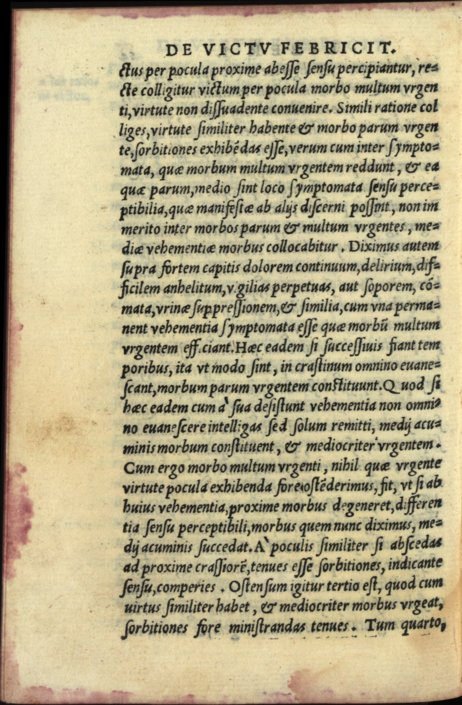 DE VICTV FEBRICIT.
ctus per pocula proxime abesse sensu percipiantur, re=
cte colligitur victum per pocula morbo multum vrgen
ti, virtute non dissuadente conuenire. Simili ratione col
liges, virtute similiter habente & morbo parum vrgen
te, sorbitiones exhibēdas esse, verum cum inter sympto=
mata, quæ morbum multum vrgentem reddunt, & ea
quæ parum, medio sint loco symptomata sensu perce=
ptibilia, quæ manifestæ ab alijs discerni possint, non im
merito inter morbos parum & multum vrgentes, me=
diæ vehementiæ morbus collocabitur. Diximus autem
supra fortem capitis dolorem continuum, delirium, dif=
ficilem anhelitum, v.gilias perpetuas, aut soporem, có=
mata, vrinæ suppressionem, & similia, cum vna perma=
nent vehementia symptomata esse quæ morbū multum
vrgentem eff.ciant. Hæc eadem si successiuis fiant tem
poribus, ita vt modo sint, in crastinum omnino euane=
scant, morbum parum vrgentem constituunt. Quod si
hæc eadem cum à sua desistunt vehementia non omni=
no euanescere intelligas sed solum remitti, medij acu=
minis morbum constituent, & mediocriter vrgentem.
Cum ergo morbo multum vrgenti, nihil quæ vrgente
virtute pocula exhibenda fore ostēderimus, fit, vt si ab
huius vehementia, proxime morbus degeneret, differen
tia sensu perceptibili, morbus quem nunc diximus, me=
dij acuminis succedat. A poculis similiter si abscedas
ad proxime crassiorē, tenues esse sorbitiones, indicante
sensu, comperies. Ostensum igitur tertio est, quod cum
uirtus similiter habet, & mediocriter morbus vrgeat,
sorbitiones fore ministrandas tenues. Tum quarto,